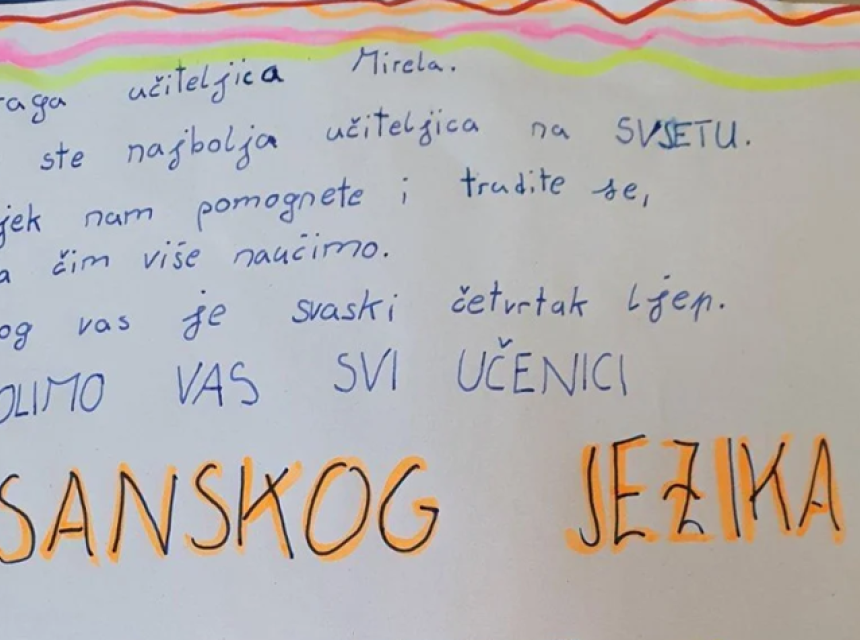 raga učiteljica Mirela.
ste najbolja učiteljica na SVSETU.
jek nam pomognete i trudite se,
a čim više naučimo.
og vas je svaski četvrtak ljep.
OLIMO VAS SVI UČENICI
SANSKOG JEZIKA